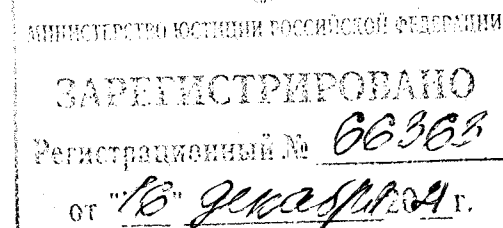 МИНИСТЕРСТВО ЮСТИЦИИ РОССИЙСКОЙ ФЕДЕРАЦИИ
ЗАРЕГИСТРИРОВАНО
Регистрационный № 66363
от "16" декабря 2021 г.